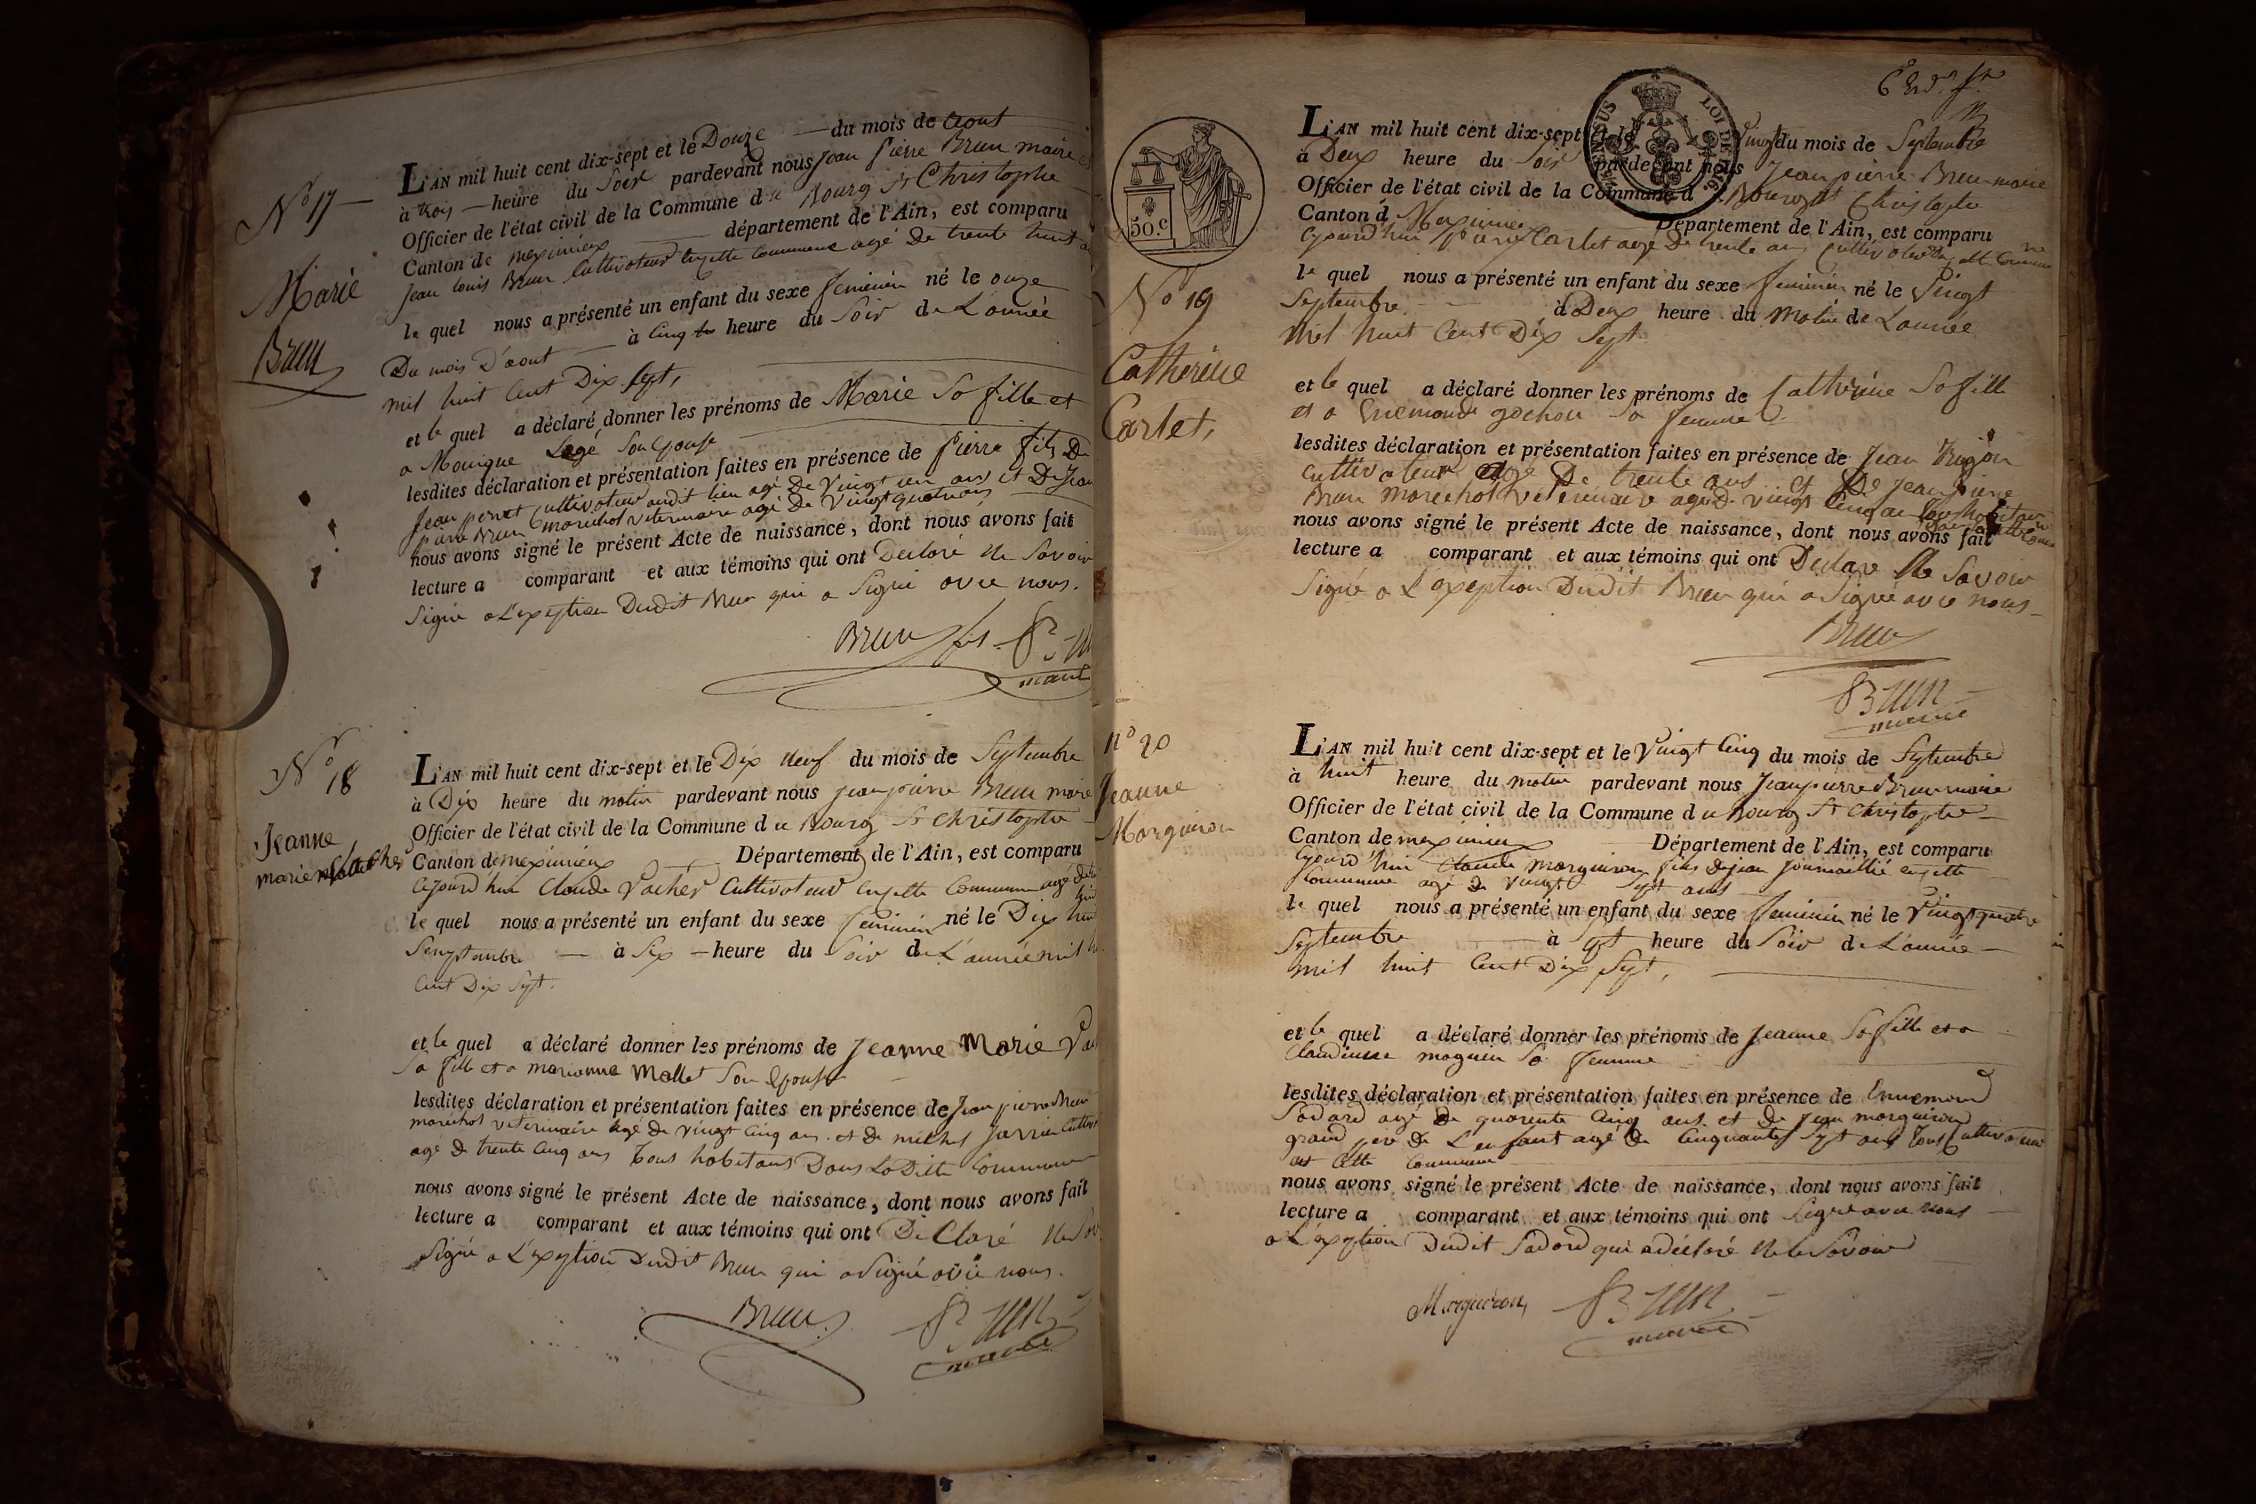 N° 17
Marie
Brun
L'AN mil huit cent dix-sept et le Douze du mois de Aout
à trois heure du Soir pardevant nous Jean pierre Brun maire
Officier de l'état civil de la Commune du Bourg St Christophe
Canton de meximieux département de l'Ain, est comparu
Jean louis Brun Cultivateur en cette commune agé de trente huit
le quel nous a présenté un enfant du sexe feminin né le onze
Du mois D'aout à Cinq heure du Soir de L'année
mil huit Cent Dix Sept,
et le quel a déclaré donner les prénoms de Marie Sa fille et
a Monique Son Epouse
lesdites déclaration et présentation faites en présence de pierre fils De
Jean Cultivateur audit lieu agé De Vingt un ans et De Jean
pierre Brun marechal veterinaire agé de Vingt quatre ans
nous avons signé le présent Acte de naissance, dont nous avons fait
lecture a comparant et aux témoins qui ont Declaré Ne Savoir
Signé a L'exeption Dudit Brun qui a Signé avec nous.
Brun fils Brun
maire
N° 18
Jeanne
marie
L'AN mil huit cent dix-sept et le Dix Neuf du mois de Septembre
à Dix heure du matin pardevant nous jean pierre Brun maire
Officier de l'état civil de la Commune du Bourg St Christophe
Canton de meximieux Département de l'Ain, est comparu
cejourd'hui Claude Vacher Cultivateur en cette Commune agé de
le quel nous a présenté un enfant du sexe feminin né le Dix huit
Septembre à Six heure du Soir de L'année mil
Cent Dix Sept.
et le quel a déclaré donner les prénoms de Jeanne Marie
Sa fille et a marianne Mollet Son Epouse
lesdites déclaration et présentation faites en présence de Jean pierre Brun
maréchal veterinaire agé de vingt Cinq ans et de michel
agé de trente Cinq ans tous habitans Dans La Ditte Commune
nous avons signé le présent Acte de naissance, dont nous avons fait
lecture a comparant et aux témoins qui ont DéClaré Ne
Signé a L'exeption Dudit Brun qui a Signé avec nous.
Brun Brun
maire
LOI DE 1816.
50.c
N° 19
Catherine
Carlet,
L'AN mil huit cent dix-sept et le Vingt du mois de Septembre
à Deux heure du Soir pardevant nous Jean pierre Brun maire
Officier de l'état civil de la Commune d Bourg St Christophe
Canton d Meximieux Département de l'Ain, est comparu
cejourd'hui pierre Carlet agé de trente ans Cultivateur
le quel nous a présenté un enfant du sexe feminin né le Vingt
Septembre à Deux heure du Matin de L'année
Mil huit Cent Dix Sept
et le quel a déclaré donner les prénoms de Catherine Sa fille
et a gochon Sa femme
lesdites déclaration et présentation faites en présence de Jean
Cultivateur agé De trente ans et De Jean pierre
Brun marechal veterinaire agé de vingt Cinq ans
nous avons signé le présent Acte de naissance, dont nous avons fait
lecture a comparant et aux témoins qui ont Declaré Ne Savoir
Signé a L'exeption Dudit Brun qui a Signé avec nous
Brun
Brun
maire
N° 20
Jeanne
Marguiron
L'AN mil huit cent dix-sept et le Vingt Cinq du mois de Septembre
à huit heure du matin pardevant nous Jean pierre Brun maire
Officier de l'état civil de la Commune du Bourg St Christophe
Canton de meximieux Département de l'Ain, est comparu
cejourd'hui Claude Marguiron fils de jean en cette
Commune agé de vingt Sept ans
le quel nous a présenté un enfant du sexe feminin né le Vingt quatre
Septembre à Sept heure du Soir de L'année
mil huit Cent Dix Sept,
et le quel a déclaré donner les prénoms de Jeanne Sa fille et a
Claudine maguin Sa femme
lesdites déclaration et présentation faites en présence de Ennemond
Sadard agé de quarente Cinq ans et de Jean marguiron
grand pere de L'enfant agé de Cinquante Sept ans tous Cultivateur
Cette Commune
nous avons signé le présent Acte de naissance, dont nous avons fait
lecture a comparant et aux témoins qui ont Signé avec nous
a L'exeption Dudit Sadard qui a déclaré Ne le Savoir
Marguiron, Brun
maire